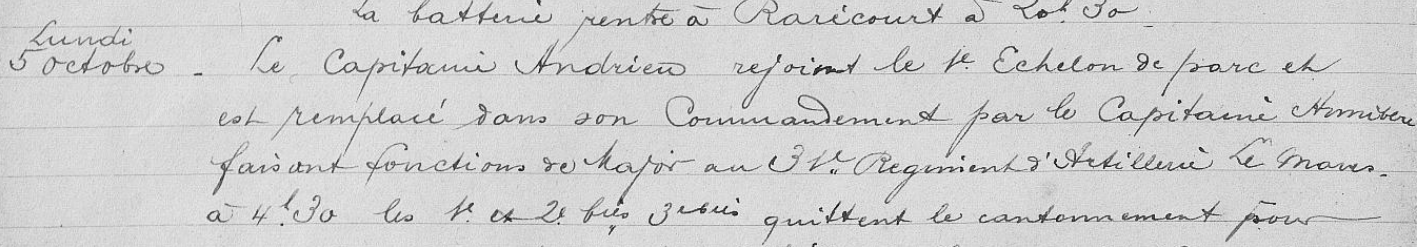 La batterie rentre à Raricourt à 20h 30
Lundi
5 octobre - Le Capitaine Andrieu rejoint le 1e Echelon de parc et
est remplacé dans son Commandement par le Capitaine
faisant fonctions de Major au 31e Regiment d'Artillerie Le Mans.
à 4h 30 les 1e et 2e bies quittent le cantonnement pour